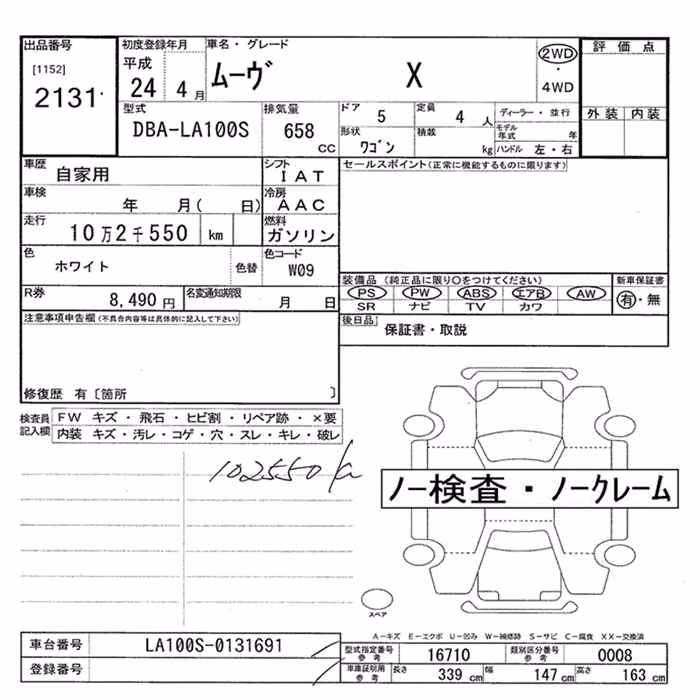 出品番号 初度登録年月 車名・グレード 評価点
[1152] 平成 ムーヴ X 2WD
2131 24 4月 ・ 4WD
型式 排気量 ドア 5 定員 4人 ディーラー・並行 外装 内装
DBA-LA100S 658 CC 形状 ワゴン 積載 kg モデル年式 年
ハンドル 左・右
車歴 自家用 シフト IAT セールスポイント(正常に機能するものに限ります)
車検 年 月( 日) 冷房 AAC
走行 10万2千550 km 燃料 ガソリン
色 ホワイト 色替 色コード W09
装備品 (純正品に限り○をつけてください) 新車保証書
R券 8,490円 名変通知期限 月 日 PS PW ABS エアB AW 有・無
SR ナビ TV カワ
注意事項申告欄(不具合内容等は具体的に記入して下さい) 後日品 保証書・取説
修復歴 有〔箇所 〕
検査員記入欄 FW キズ・飛石・ヒビ割・リペア跡・×要
内装 キズ・汚レ・コゲ・穴・スレ・キレ・破レ
102550
ノー検査・ノークレーム
スペア
A-キズ E-エクボ U-凹み W-補修跡 S-サビ C-腐食 XX-交換済
車台番号 LA100S-0131691 型式指定番号 参考 16710 類別区分番号 参考 0008
登録番号 車庫証明用 参考 長さ 339cm 幅 147cm 高さ 163cm